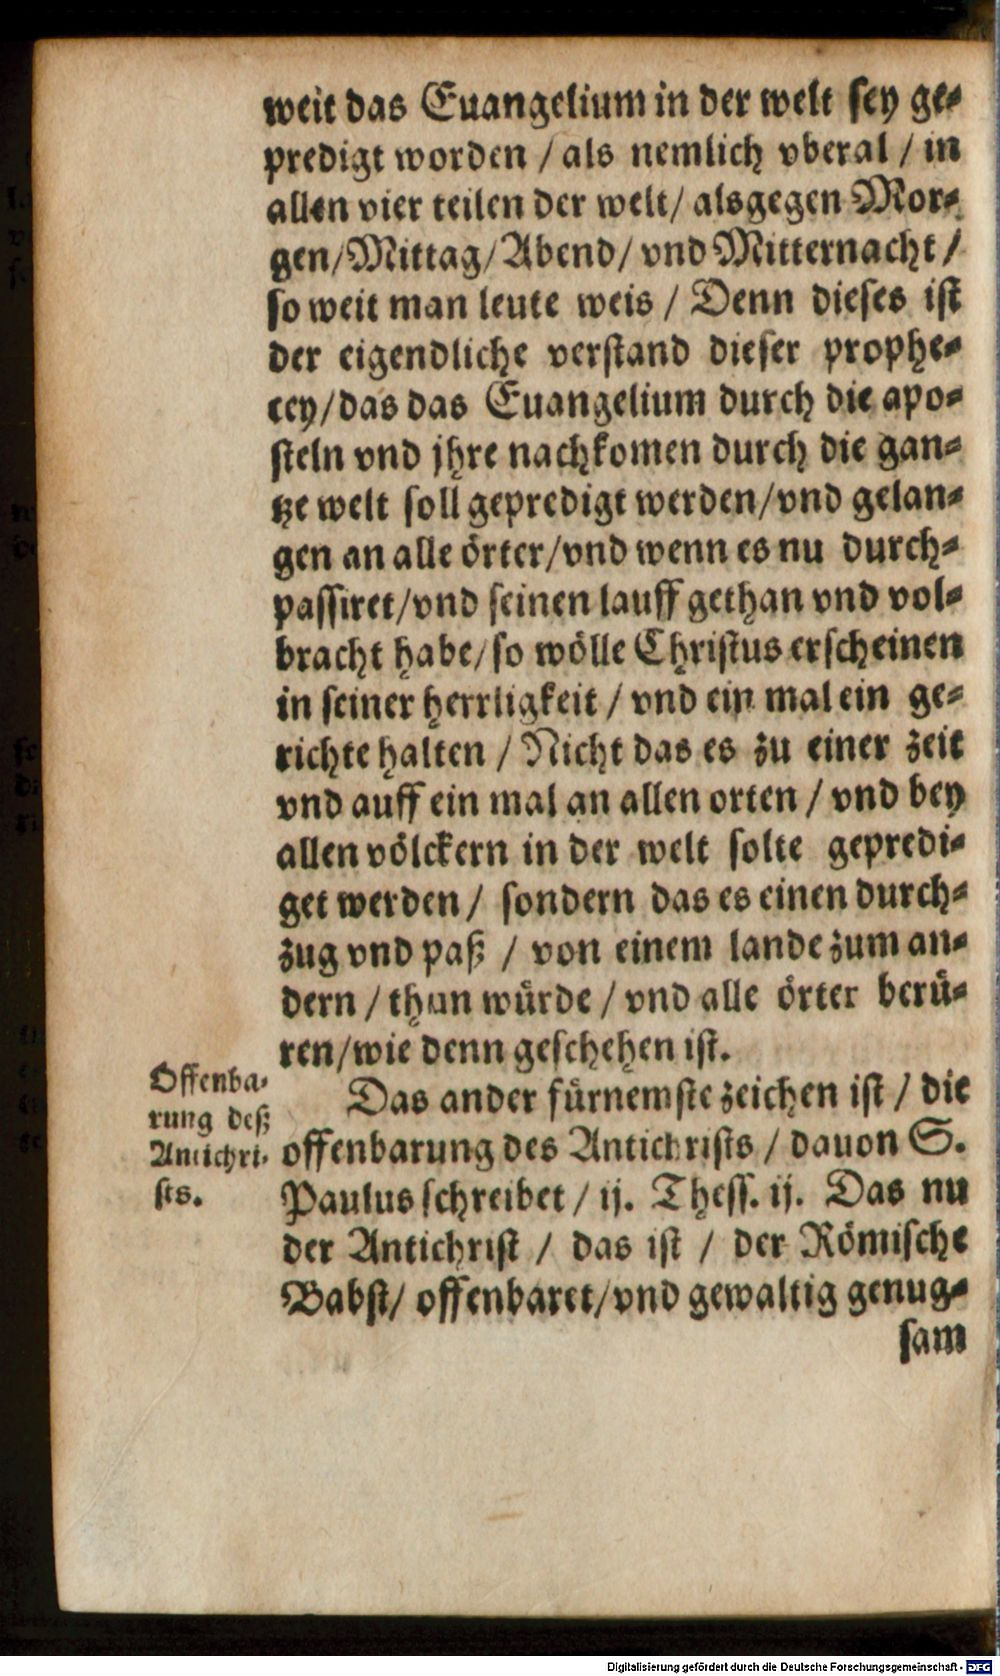 weit das Euangelium in der welt sey ge-
predigt worden / als nemlich vberal / in
allen vier teilen der welt / als gegen Mor-
gen / Mittag / Abend / vnd Mitternacht /
so weit man leute weis / Denn dieses ist
der eigendliche verstand dieser prophe-
cey / das das Euangelium durch die apo-
steln vnd jhre nachkomen durch die gan-
tze welt soll gepredigt werden / vnd gelan-
gen an alle örter / vnd wenn es nu durch-
passiret / vnd seinen lauff gethan vnd vol-
bracht habe / so wölle Christus erscheinen
in seiner herrligkeit / vnd ein mal ein ge-
richte halten / Nicht das es zu einer zeit
vnd auff ein mal an allen orten / vnd bey
allen völckern in der welt solte gepredi-
get werden / sondern das es einen durch-
zug vnd paß / von einem lande zum an-
dern / thun würde / vnd alle örter berü-
ren / wie denn geschehen ist.
Offenba-
rung deß
Antichri-
sts.
Das ander fürnemste zeichen ist / die
offenbarung des Antichrists / dauon S.
Paulus schreibet / ij. Thess. ij. Das nu
der Antichrist / das ist / der Römische
Babst / offenbaret / vnd gewaltig genug-
sam
Digitalisierung gefördert durch die Deutsche Forschungsgemeinschaft - DFG